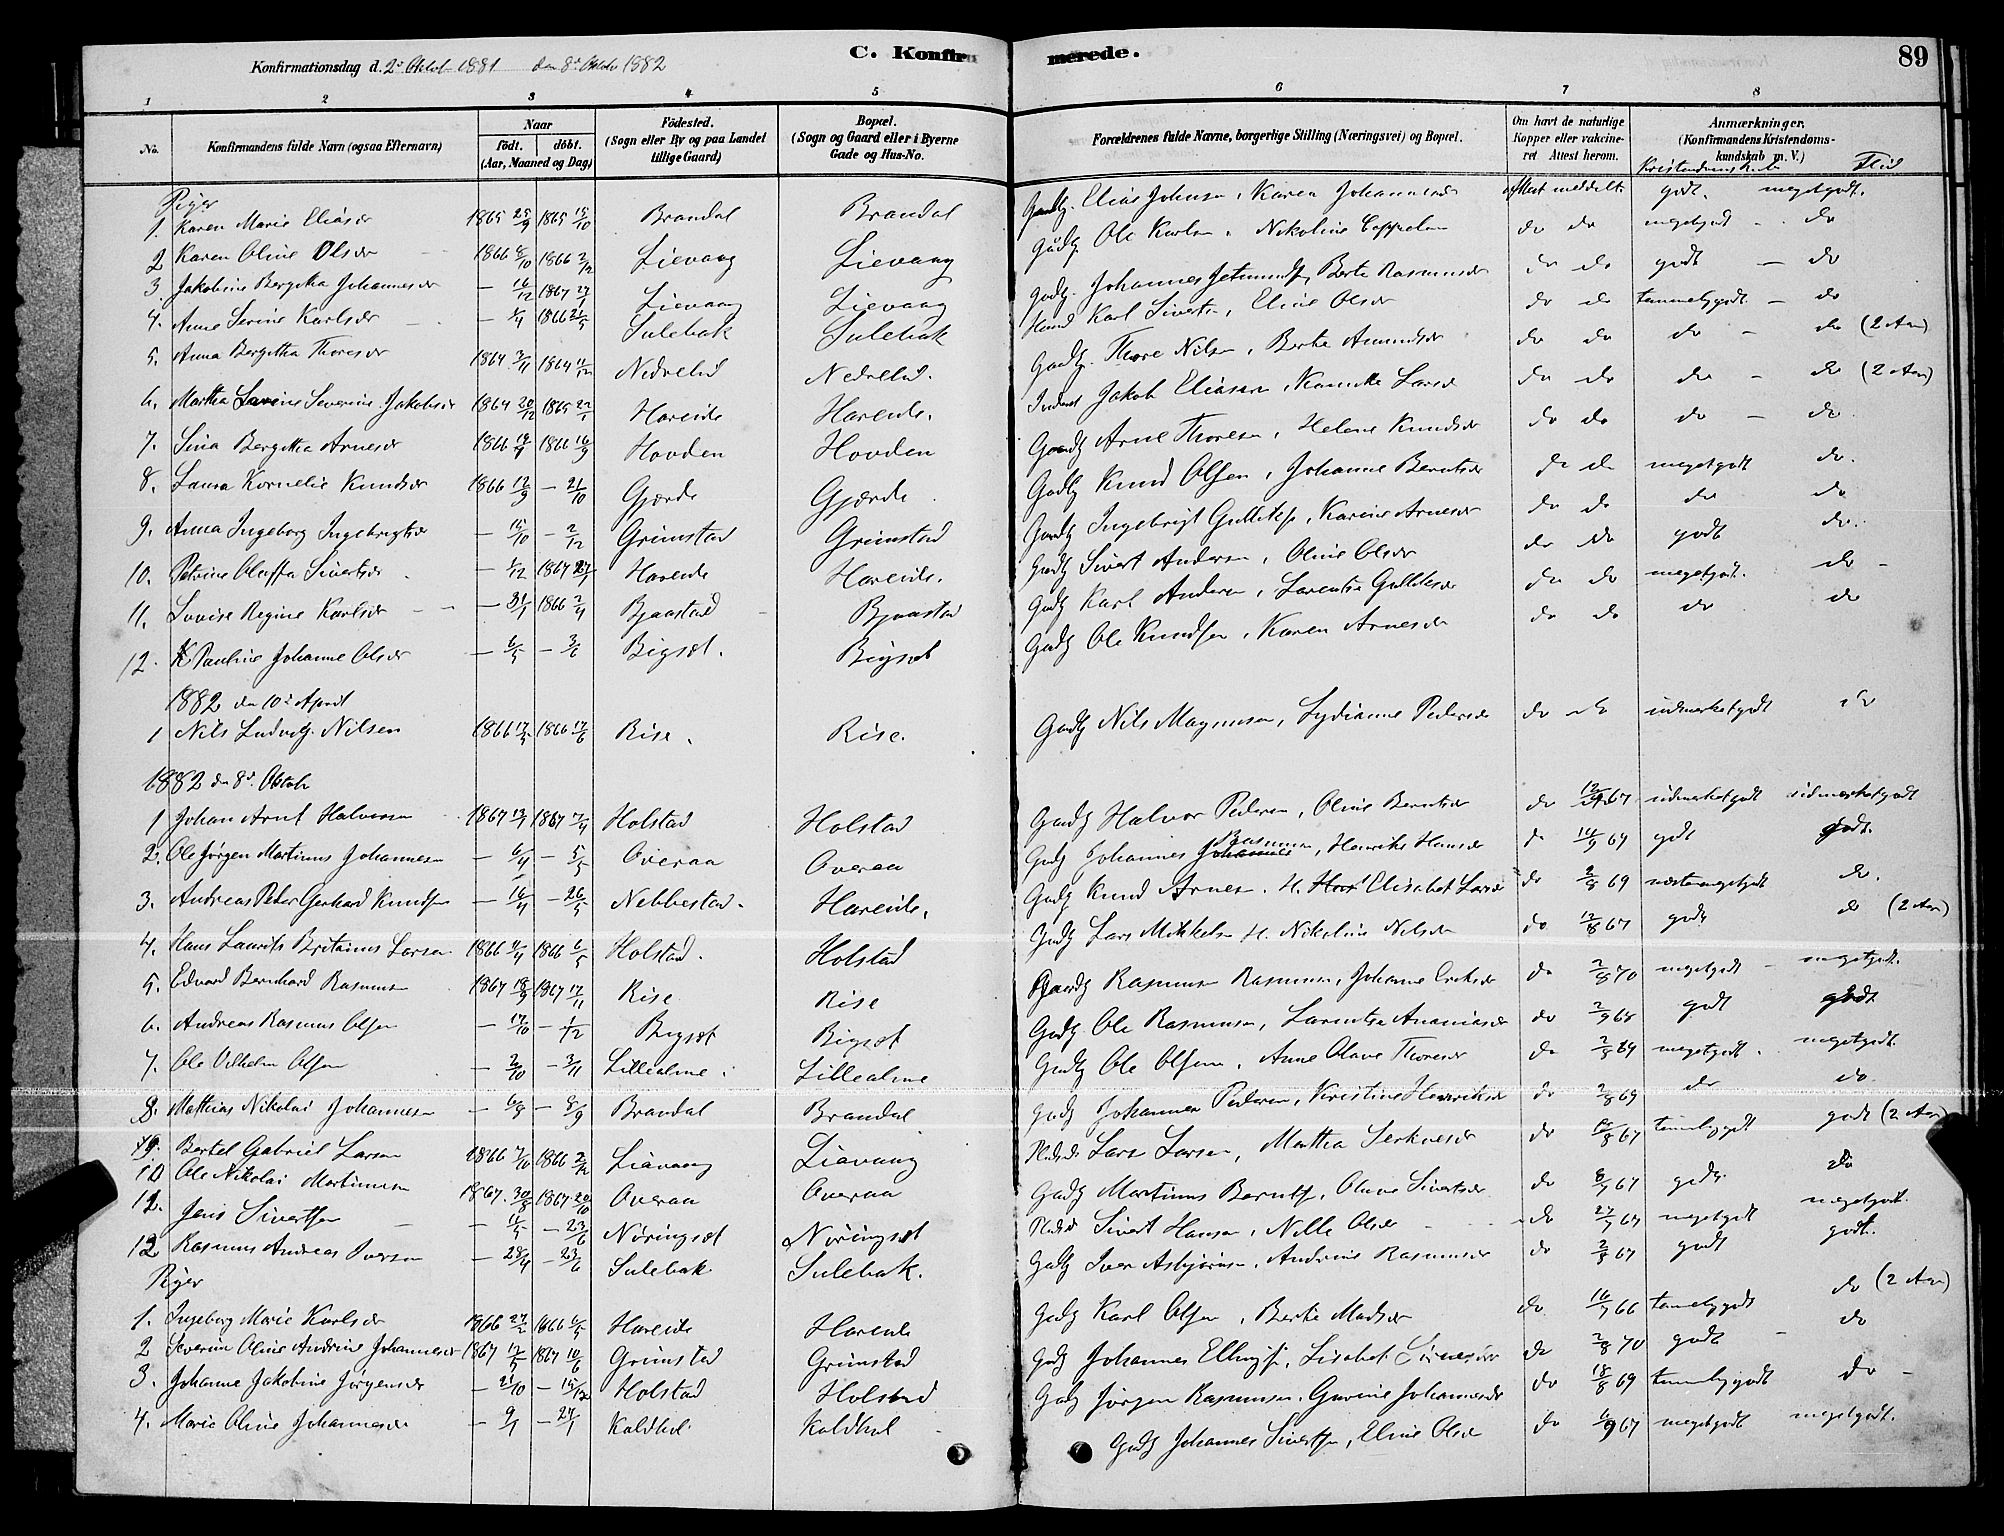 C. Konfirmerede. 89
Konfirmationsdag d. 2d Oktob 1881 den 8d Oktob 1882
1 2 3 4 5 6 7 8
No. Konfirmandens fulde Navn (ogsaa Efternavn) Naar født. døbt. (Aar, Maaned og Dag) Fødested. (Sogn eller By og paa Landet tillige Gaard) Bopæl. (Sogn og Gaard eller i Byerne Gade og Hus-No. Forældrenes fulde Navne, borgerlige Stilling (Næringsvei) og Bopæl. Om havt de naturlige Kopper eller vakcineret Attest herom. Anmærkninger. (Konfirmandens Kristendomskundskab m. V.) Flid
Piger
1. Karen Marie Eliasdr 1865 25/9 1865 15/10 Brandal Brandal Gaardbr. Elias Johnsen, Karen Johannesdr Attest meddelt godt megetgodt.
2 Karen Oline Olsdr 1866 6/10 1866 2/12 Lievaag Lievaag Gaardbr Ole Karlsen, Nikoline do do megetgodt - do
3 Jakobine Bergitha Johannesdr — 16/12 1867 27/1 Lievaag Lievaag Gaardbr. Johannes Berte Rasmusdr do do godt - do
4. Anne Serine Karlsdr — 1/4 1866 21/5 Sulebak Sulebak Karl Sivertsen, Eline Olsdr do do temmeliggodt - do
5. Anna Bergitha Thoresdr 1864 3/11 1864 11/12 Nedrelid Nedrelid. Gaardbr. Thore Nilsen, Berte Amundsdr do do do - do (2 Aar)
6. Martha Severine Jakobsdr 1864 20/12 1865 22/1 Hareide Hareide. Jakob Eliassen, Larsdr do do do - do (2 Aar)
7. Sina Bergitha Arnesdr 1866 1866 16/9 Hovden Hovden Gaardbr Arne Thoresen, Helene Knudsdr do do do - do
8. Laura Kornelie Knudsdr 1866 12/9 — 21/10 Gjerde Gjerde. Gaardbr Knud Olsen, Johanne Berntsdr do do megetgodt do.
9. Anna Ingeborg Ingebrigtsdr — 15/10 — 2/12 Grimstad Grimstad Gaardbr Ingebrigt Karine Arnesdr do do do do
10. Petrine Oluffa Sivertsdr — 5/12 1867 27/1 Hareide Hareide. Gaardbr Sivert Andersen, Oline Olsdr do do godt do.
11. Lovise Regine Karlsdr — 31/1 1866 2/4 Bjaastad Bjaastad Gaardbr Karl Andersen, Laurentse do do megetgodt. do -
12. Pauline Johanne Olsdr — 6/5 — 3/6 Bigset. Bigset Gaardbr Ole Knudsen, Karen Arnesdr do do do do
1882 den 10d April
1 Nils Ludvig Nilsen 1866 17/5 1866 17/6 Rise. Rise. Gaardbr Nils Magnussen, Lydianne Pedersdr do do udmerketgodt do
1882 den 8d. Oktob
1 Johan Arnt Halvorsen 1867 1867 17/4 Holstad Holstad Gaardbr Halvor Pedersen, Oline Berntsdr do 67 udmerketgodt udmerketgodt
2. Ole Jørgen Martinus Johannesen — 6/4 — 5/5 Overaa Overaa Gaardbr Johannes Rasmussen, Henrike Hansdr do 16/9 69 godt godt.
3. Andreas Peter Gerhard Knudsen — 16/4 — 26/5 Nebbestad. Hareide. Gaardbr Knud Arnesen. H. Elisabet Larsdr do 2/8 69 næstenmegetgodt do.
4. Hans Laurits Larsen 1866 4/4 1866 6/5 Holstad. Holstad Gaardbr Lars Mikkelsen H. Nikoline Nilsdr do 12/8 67 godt do (2 Aar)
5. Edvard Bernhard Rasmussen 1867 18/9 1867 17/11 Rise Rise Gaardbr Rasmus Rasmussen, Johanne Eriksdr do 2/8 70 megetgodt - megetgodt.
6. Andreas Rasmus Olsen — 17/10 — 1/12 Bigset Bigset Gaardbr Ole Rasmussen, Laurentse Ananiasdr do 2/9 68 godt godt
7. Ole Vilhelm Olsen — 2/10 — 3/11 Lillealme Lillealme Gaardbr Ole Olsen, Anne Olave Thoresdr do 2/8 69 megetgodt. megetgodt.
8. Mathias Nikolai Johannesen — 6/8 — 8/9 Brandal Brandal Gaardbr Johannes Pedersen, Kristine Henriksdr do 2/8 69 do do
9. Bertel Gabriel Larsen 1866 7/10 1866 2/12 Liavaag Liavaag Lars Larsen, Martha do 12/8 67 temmeliggodt godt (2 Aar)
10 Ole Nikolai Martinussen 1867 30/8 1867 20/10 Overaa Overaa Gaardbr Martinus Berntsen, Olave Sivertsdr do 67 godt do
12. Jens Sivertsen — 11/5 — 23/6 Nøringset Nøringset Sivert Hansen, Nelle Olsdr do megetgodt megetgodt.
12 Rasmus Andreas Iversen — 28/4 — 23/6 Sulebak. Sulebak. Gaardbr Iver Asbjørnsen, Andrine Rasmusdr do 2/8 67 godt godt.
Piger
1. Ingeborg Marie Karlsdr 1866 27/2 1866 6/5 Hareide Hareide Gaardbr Karl Olsen, Berte Madsdr do 16/7 66 temmeliggodt do (2 Aar)
2 Severine Oline Andrine Johannesdr 1867 17/5 1867 10/6 Grimstad Grimstad Gaardbr Johannes Ellingsen, Lisabet do 2/8 70 godt - do
3. Johanne Jakobine Jørgensdr — 21/10 — 15/12 Holstad Holstad Gaardbr Jørgen Rasmussen, Gurine Johannesdr do 18/8 69 temmeliggodt do -
4. Marie Oline Johannesdr — 9/1 — 27/1 Kaldhol Kaldhol Gaardbr Johannes Sivertsen, Eline Olsdr do 67 megetgodt megetgodt.